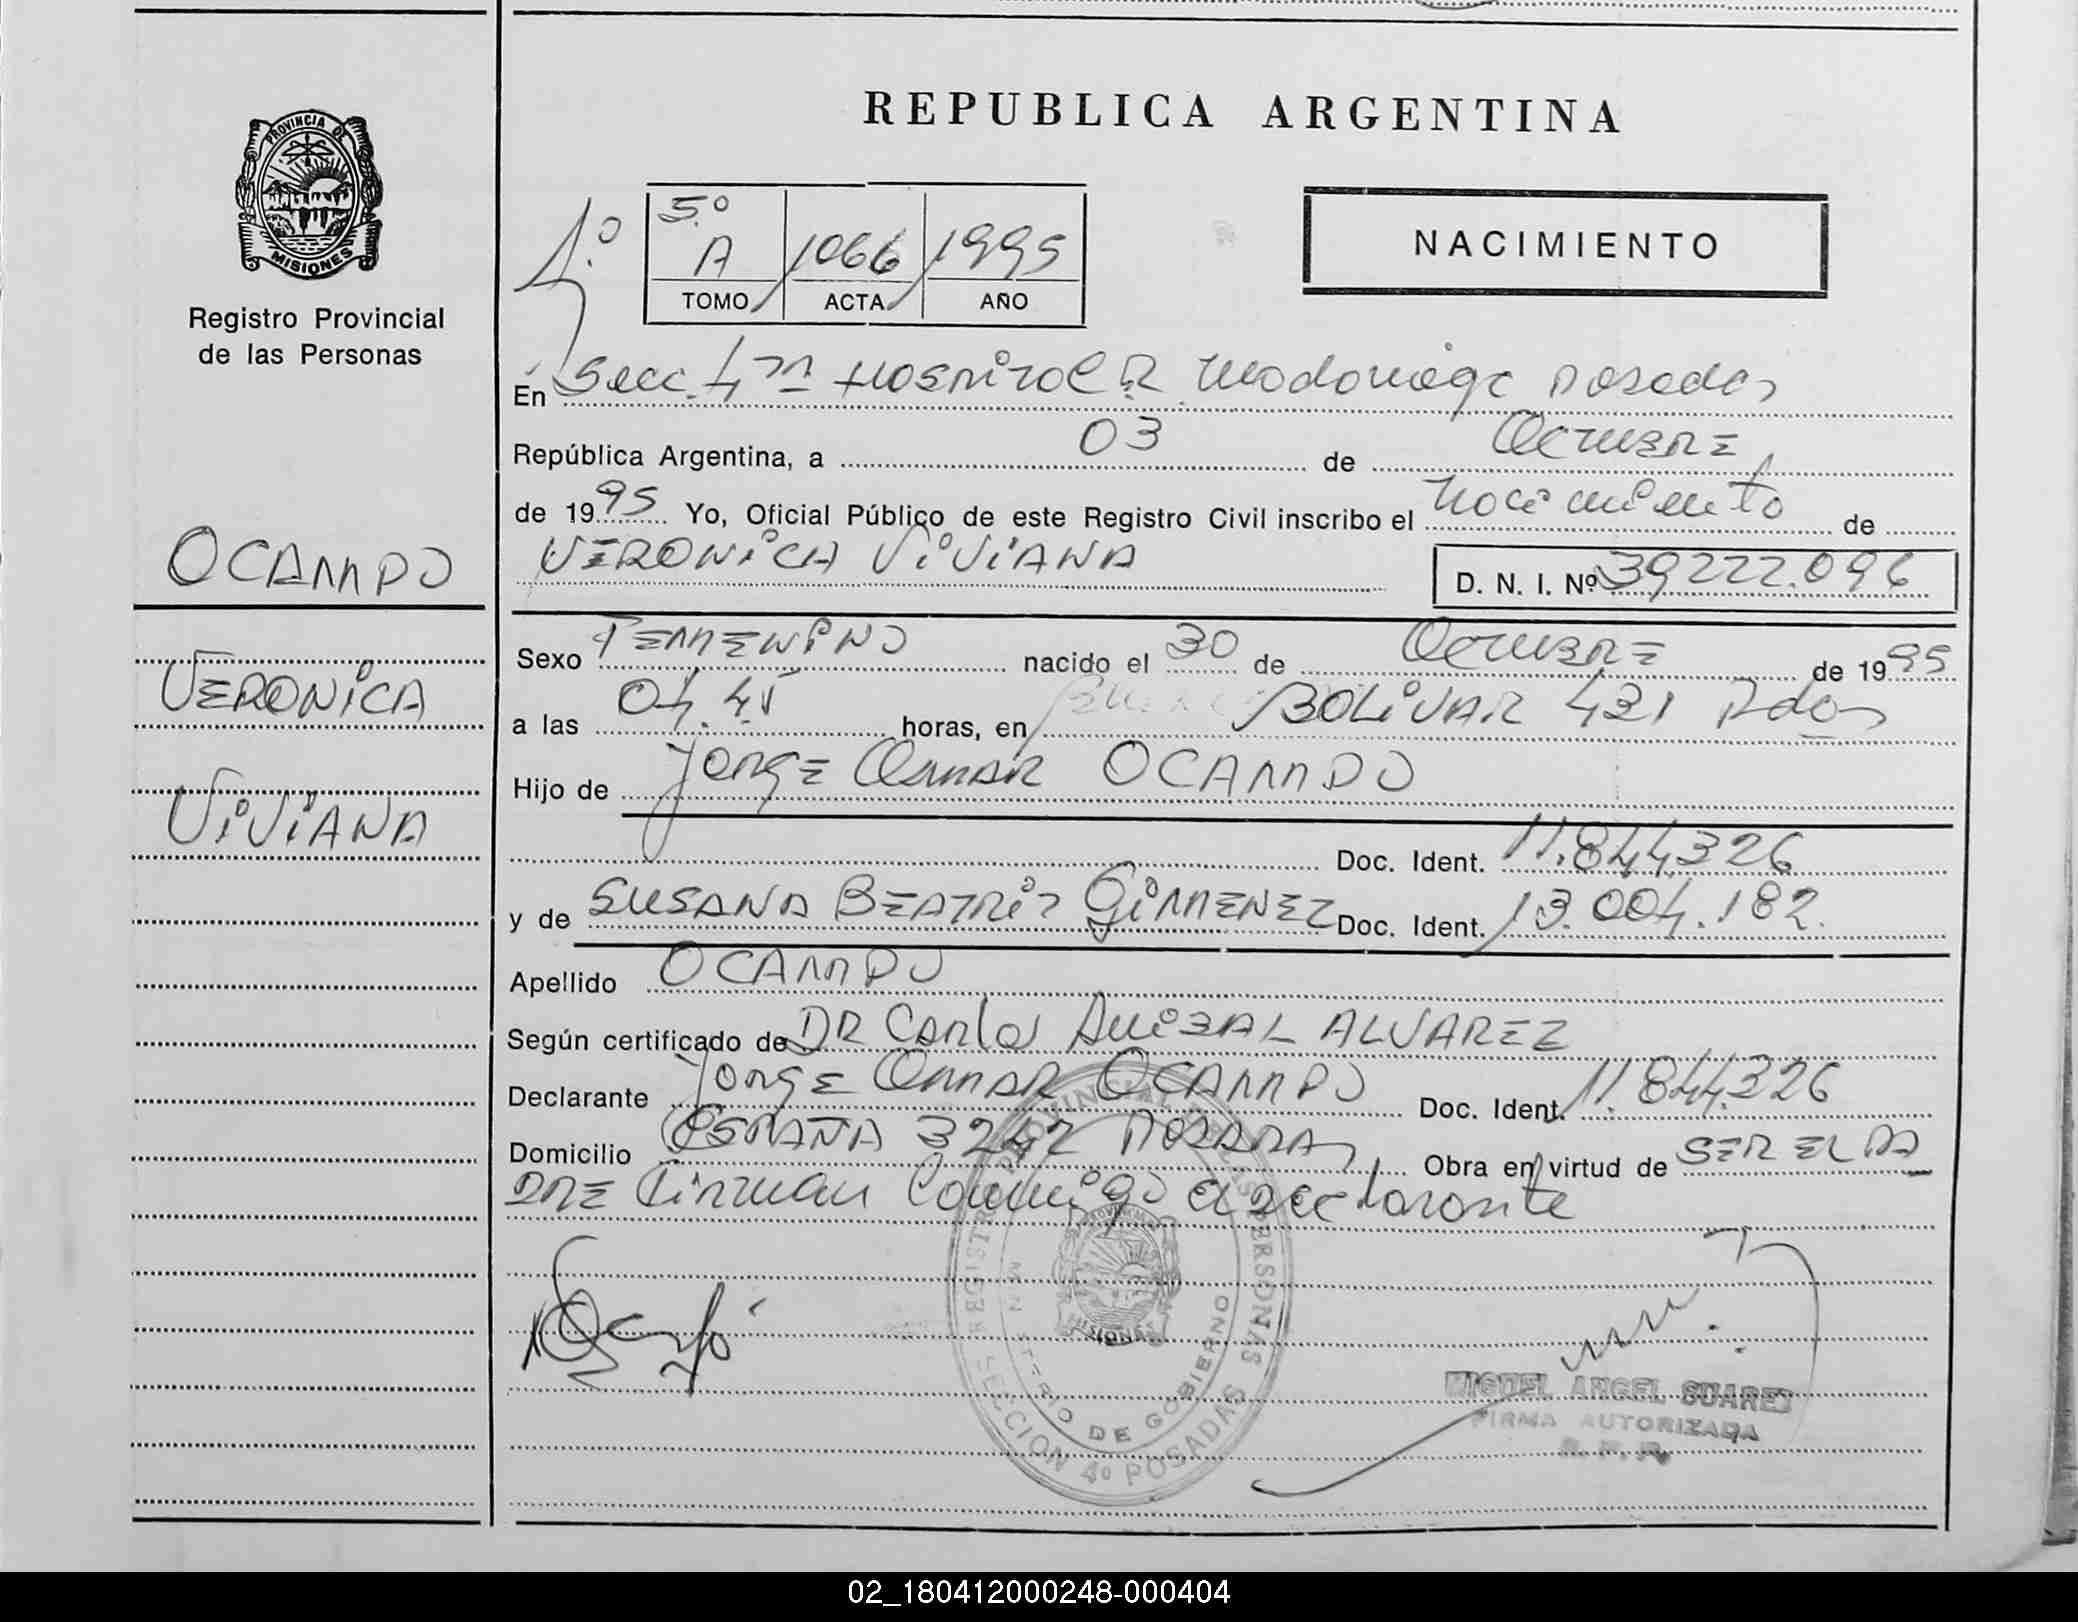 REPUBLICA ARGENTINA
PROVINCIA DE
MISIONES
Registro Provincial
de las Personas
4º
5º
A 1066 1995
TOMO ACTA AÑO
NACIMIENTO
En Secc 4ta Hospital R. Madariaga Posadas
República Argentina, a 03 de OCTUBRE
de 1995 Yo, Oficial Público de este Registro Civil inscribo el Nacimiento de
VERONICA VIVIANA
D. N. I. Nº 39222.096
OCAMPO
VERONICA
VIVIANA
Sexo FEMENINO nacido el 30 de OCTUBRE de 1995
a las 04.45 horas, en BOLIVAR 421 Pdas
Hijo de JORGE OMAR OCAMPO
Doc. Ident. 11.844.326
y de SUSANA BEATRIZ GIMENEZ Doc. Ident. 13.004.182.
Apellido OCAMPO
Según certificado de DR Carlos ANIBAL ALVAREZ
Declarante JORGE OMAR OCAMPO Doc. Ident. 11.844.326
Domicilio ESPAÑA 3242 POSADAS Obra en virtud de SER EL PA
DRE Firman Conmigo el declarante
REGISTRO PROVINCIAL DE LAS PERSONAS
MINISTERIO DE GOBIERNO
MISIONES
SECCION 4º POSADAS
MIGUEL ANGEL SUAREZ
FIRMA AUTORIZADA
R. P. P.
02_180412000248-000404